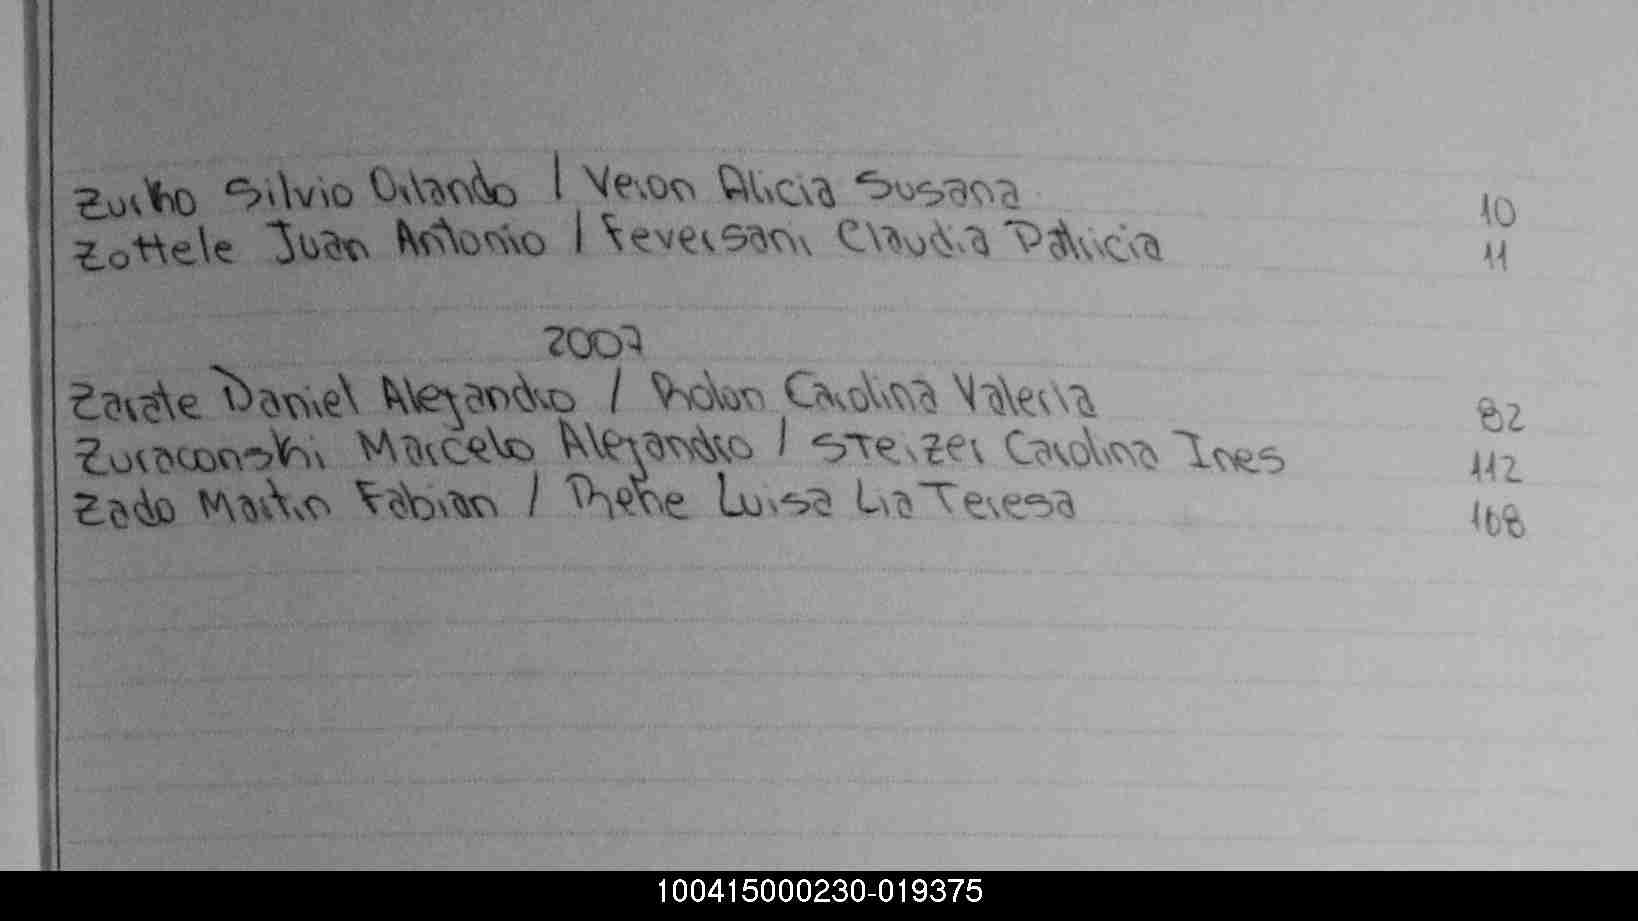 Zurko Silvio Orlando / Veron Alicia Susana 10
Zottele Juan Antonio / Feversani Claudia Patricia 11
2007
Zarate Daniel Alejandro / Rolon Carolina Valeria 82
Zuraconski Marcelo Alejandro / Steizer Carolina Ines 112
Zado Martin Fabian / Rehe Luisa Lia Teresa 168
100415000230-019375